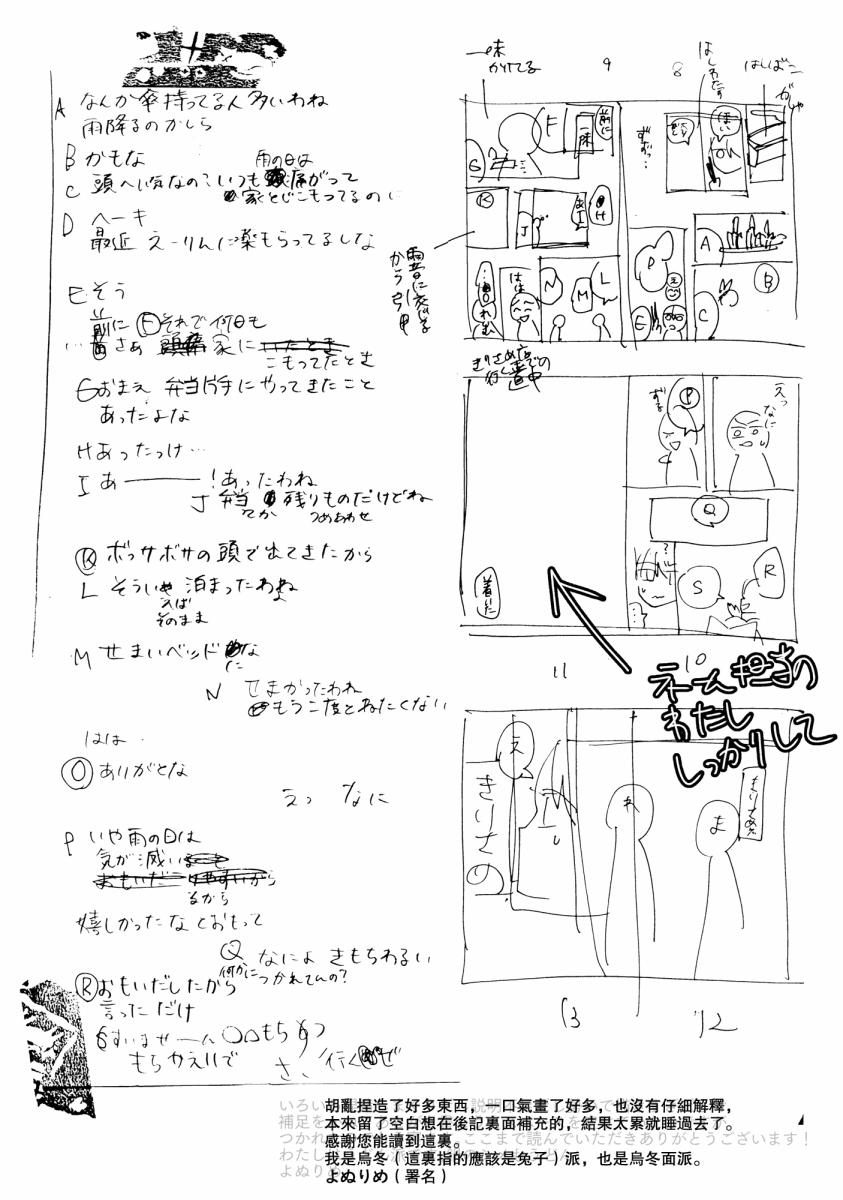 A なんか傘持ってる人多いわね
雨降るのかしら
B かもな
雨の日は
C 頭へい気なの?いつも痛がって
家とじこもってるのに
D ヘーキ
最近 えーりんに薬もらってるしな
E そう
前に F それで何日も
…さあ 家に
こもってたとき
G おまえ 弁当片手にやってきたこと
あったよな
H あったっけ…
I あ――――!あったわね
J 弁当 残りものだけどね
てか つめあわせ
K ボッサボサの頭で出てきたから
L そういや 泊まったわね
えば
そのまま
M せまいベッドな
に
N せまかったわね
もう二度とねたくない
ははは
O ありがとな
えっ なに
P いや雨の日は
気が滅い
るから
嬉しかったなとおもって
Q なによ きもちわるい
何かにつかれてんの?
R おもいだしたから
言っただけ
S すいませーん ○○もち
もらかえりで
さ、行くぜ
一味
かけてる
9
8
はしわたす
はしばこ
がしゃ
前に
一味
F
G
K
J
あI
H
雨音に交じる
から
N
M
L
はは
ずずっ…
A
B
C
D
E
きりさめ店
行くまでの
道中
P
えっ
なに
Q
R
S
…
?
着いた
11
10
ネーム担当の
わたし
しっかりして
え
きりさめ
れ
ま
13
12
胡亂捏造了好多東西,一口氣畫了好多,也沒有仔細解釋,
本來留了空白想在後記裏面補充的,結果太累就睡過去了。
感謝您能讀到這裏。
我是烏冬(這裏指的應該是兔子)派,也是烏冬面派。
よぬりめ(署名)